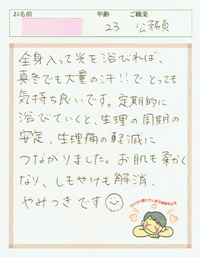 お名前 年齢 ご職業
23 公務員
全身入って光を浴びれば、
真冬でも大量の汗!!でとっても
気持ち良いです。定期的に
浴びていくと、生理の周期の
安定、生理痛の軽減に
つながりました。お肌も柔かく
なり、しもやけも解消、
やみつきです